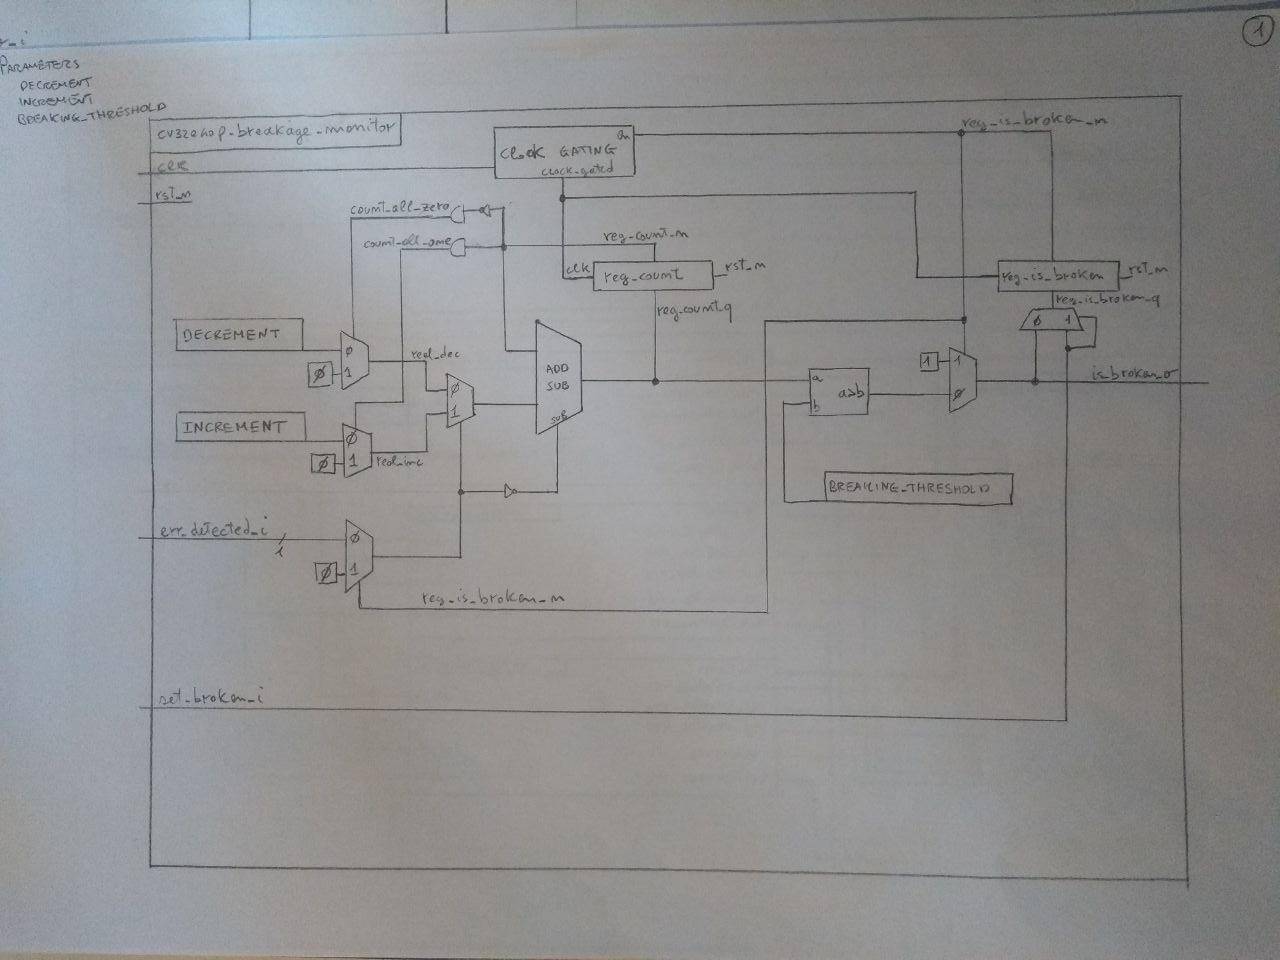 1
r_i
PARAMETERS
DECREMENT
INCREMENT
BREAKING_THRESHOLD
cv32e40p_breakage_monitor
clk
rst_n
CLOCK GATING
en
clock_gated
reg_is_broken_n
count_all_zero
count_all_one
reg_count_n
clk
reg_count
rst_n
reg_count_q
reg_is_broken
rst_n
reg_is_broken_q
Ø 1
DECREMENT
Ø
Ø 1
real_dec
INCREMENT
Ø
Ø 1
real_inc
Ø
1
ADD
SUB
SUB
a
b
a>b
1 1
Ø
is_broken_o
BREAKING_THRESHOLD
err_detected_i
1
Ø
Ø 1
reg_is_broken_n
set_broken_i